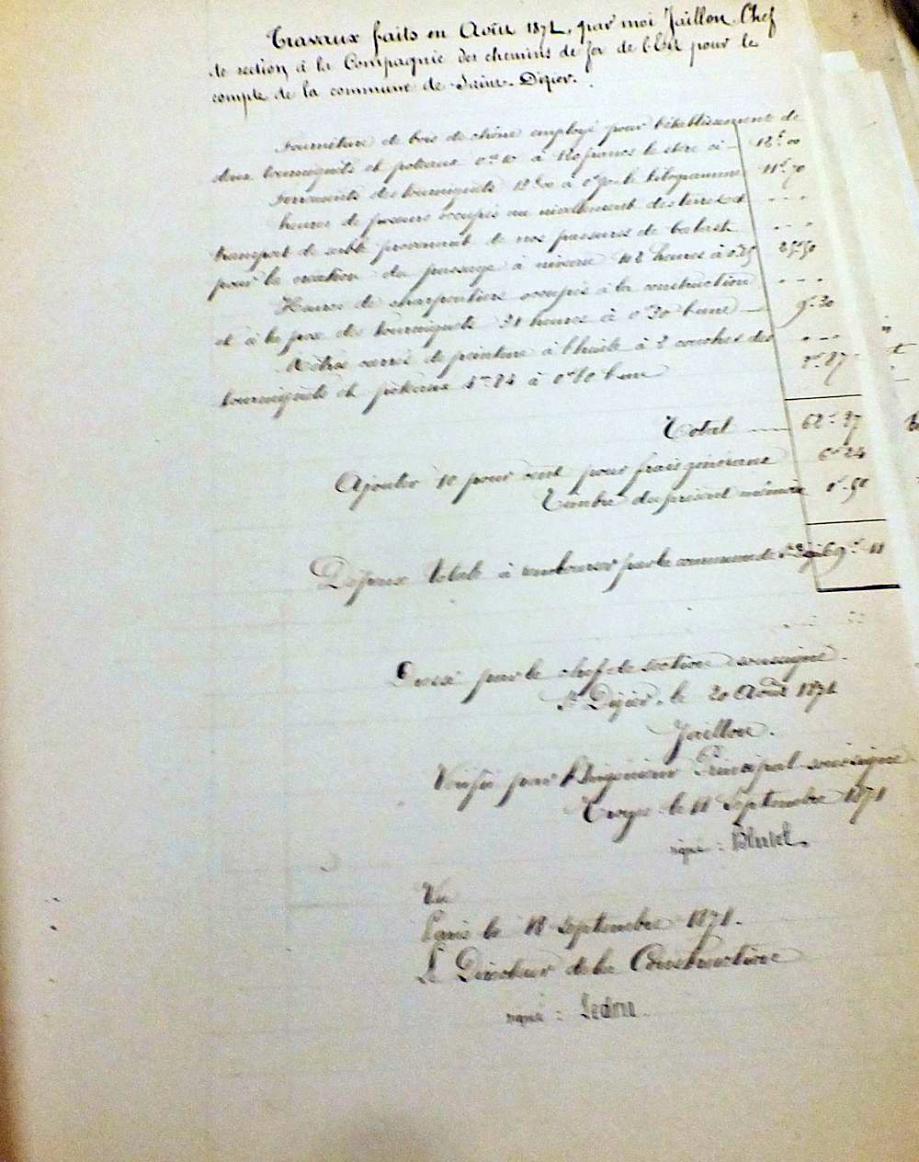 Travaux faits en Août 1871, par moi Jaillon, Chef
de section à la Compagnie des chemins de fer de l'Est pour le
compte de la commune de Saint-Dizier.
Fourniture de bois de chêne employé pour l'établissement de
deux tourniquets et poteaux 0m10 à 120 francs le stère ci 12f.00
Ferrements des tourniquets à le kilogramme 11f.70
heures de poseurs occupés au nivellement des terres et
transport de sable provenant de nos passures de balast
pour la création du passage à niveau 102 heures à 0.25 25.50
Heures de charpentiers occupés à la construction
et à la pose des tourniquets 31 heures à 0f30 l'une 9f.30
Mètres carrés de peinture à l'huile à 2 couches des
tourniquets et poteaux à l'une
Total 62f.27
Ajouter 10 pour cent pour frais généraux 6f.24
Timbre du présent mémoire 0f.50
Dépense totale à rembourser par la commune de St Dizier 69f.11
Dressé par le chef de section soussigné.
St Dizier, le 20 Août 1871
Jaillon.
Vérifié par l'Ingénieur Principal soussigné
Troyes le 11 Septembre 1871
signé :
Vu
Paris le 18 Septembre 1871.
Le Directeur de la Construction
signé : Ledru